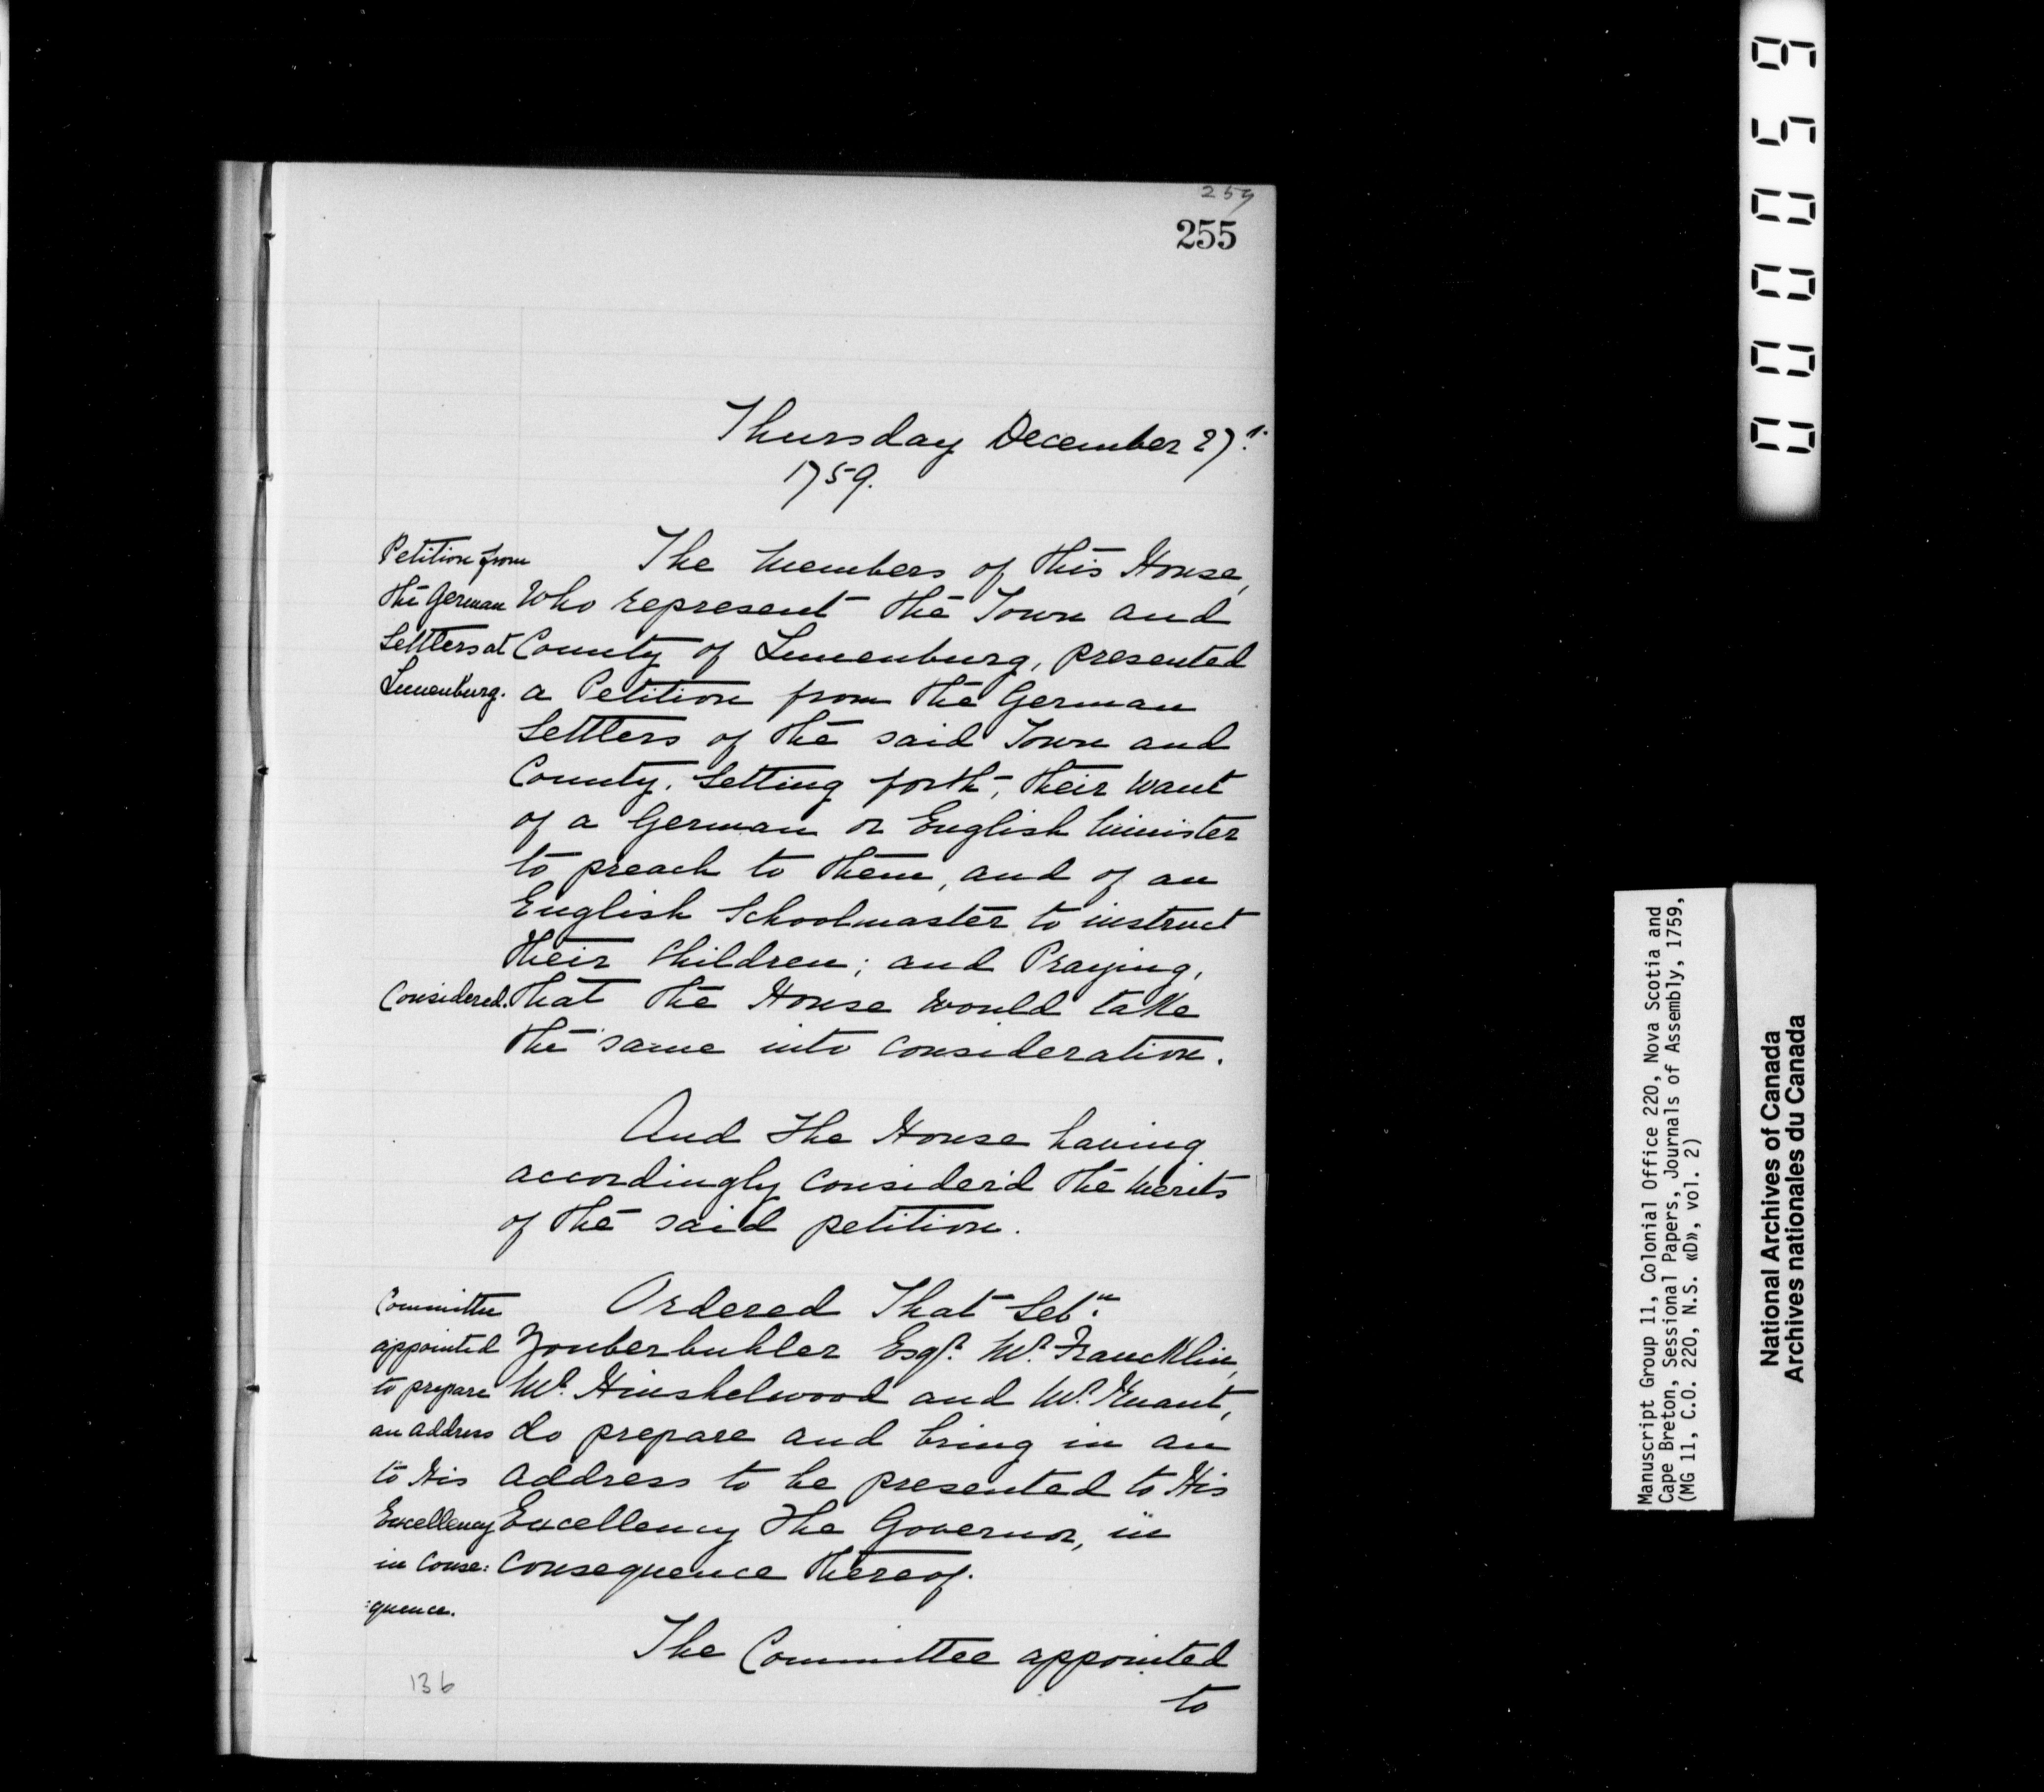 257
255
Thursday December 27th.
1759.
Petition from
the German
Settlers at
Lunenburg.
The Members of this House,
Who represent the Town and
County of Lunenburg, presented
a Petition from the German
Settlers of the said Town and
County. Setting forth, their want
of a German or English Minister
to preach to them, and of an
English Schoolmaster to instruct
their Children; and Praying,
Considered.
that the House would take
the same into consideration.
And the House having
accordingly consider'd the Merits
of the said petition.
Committee
appointed
to prepare
an address
to His
Excellency
in Conse:
:quence.
Ordered That Sebn.
Zouberbuhler Esqr. Mr. Francklin,
Mr. Hinshelwood and Mr. Knaut,
do prepare and bring in an
address to be presented to His
Excellency the Governor, in
consequence thereof.
The Committee appointed
to
136
000059
Manuscript Group 11, Colonial Office 220, Nova Scotia and
Cape Breton, Sessional Papers, Journals of Assembly, 1759,
(MG 11, C.O. 220, N.S. «D», vol. 2)
National Archives of Canada
Archives nationales du Canada